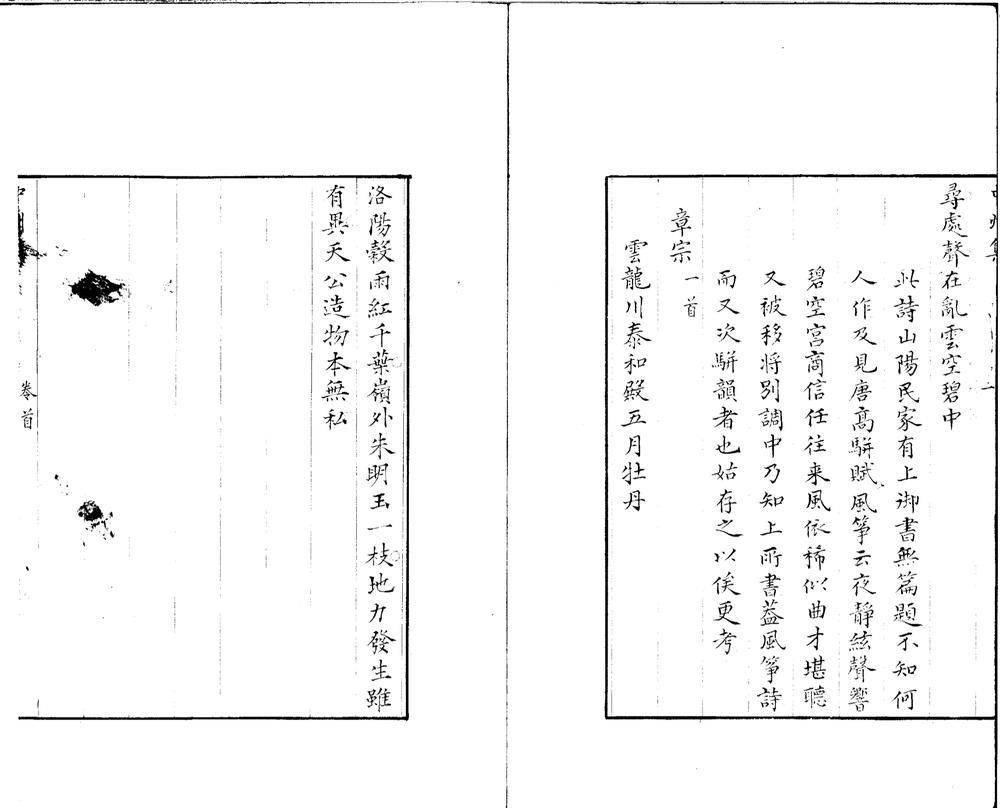 尋處聲在亂雲空碧中
此詩山陽民家有上御書無篇題不知何
人作及見唐高駢賦風箏云夜靜絃聲響
碧空宮商信任往来風依稀似曲才堪聽
又被移将别調中乃知上所書蓋風箏詩
而又次駢韻者也姑存之以俟更考
章宗一首
雲龍川泰和殿五月牡丹
洛陽穀雨紅千葉嶺外朱明玉一枝地力發生雖
有異天公造物本無私
卷首